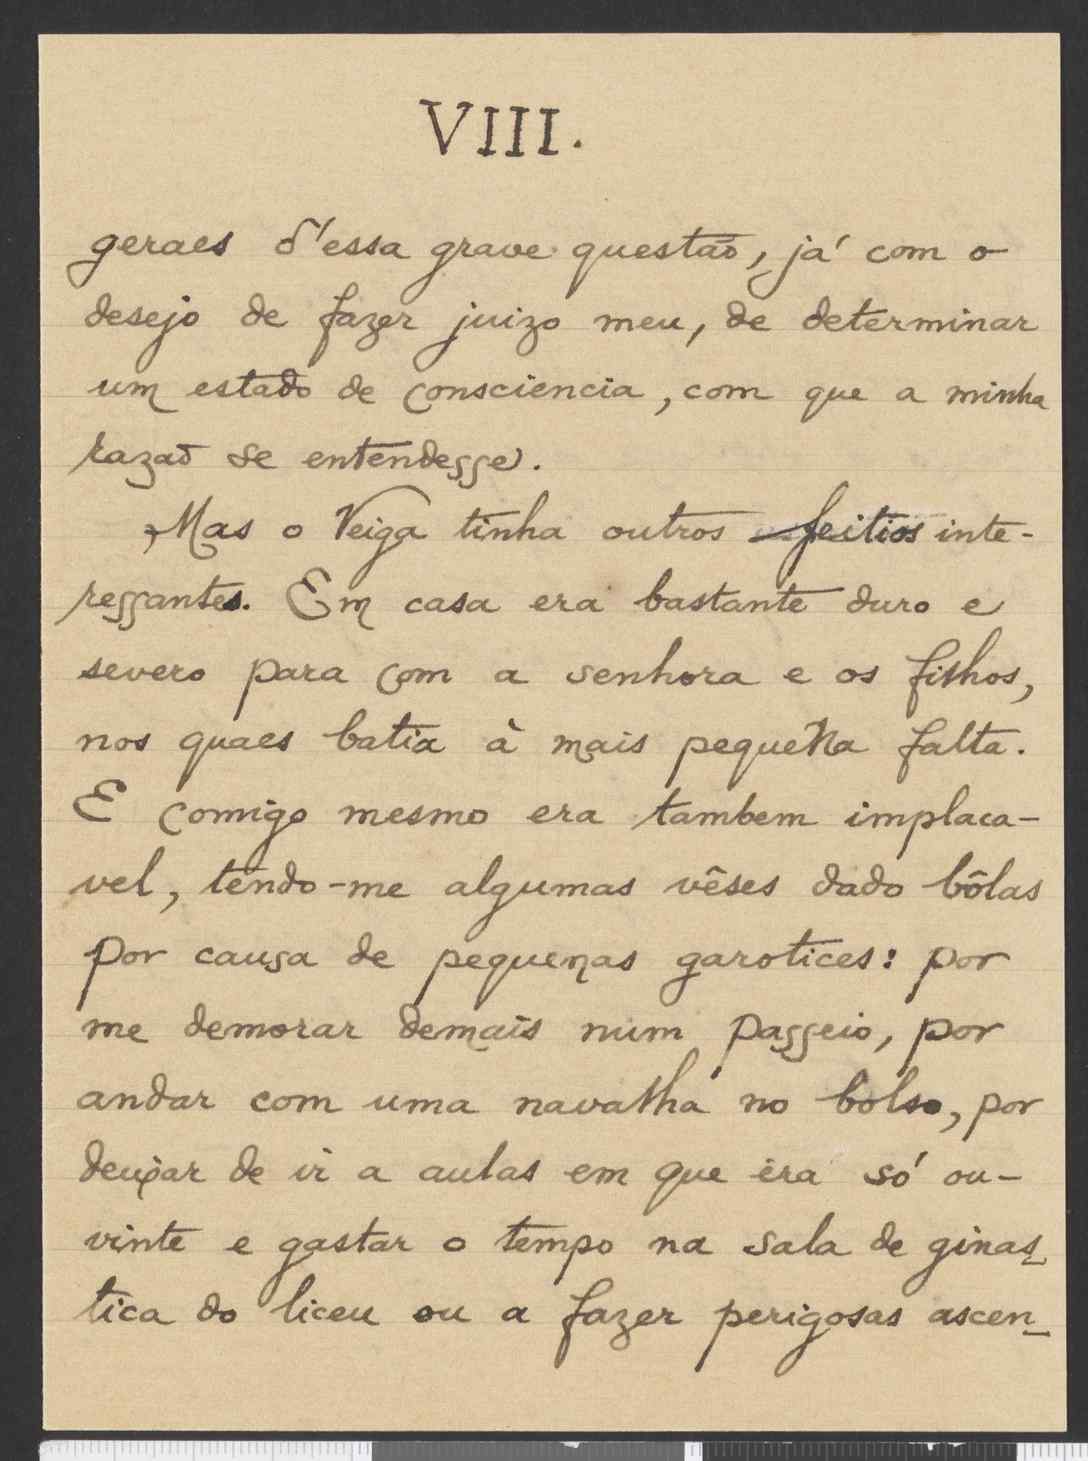 VIII.
geraes d'essa grave questão, já com o
desejo de fazer juizo meu, de determinar
um estado de consciencia, com que a minha
razaõ se entendesse.
Mas o Veiga tinha outros feitios inte-
ressantes. Em casa era bastante duro e
severo para com a senhora e os filhos,
nos quaes batia à mais pequena falta.
E comigo mesmo era tambem implaca-
vel, tendo-me algumas vêses dado bôlas
por causa de pequenas garotices: por
me demorar demais num passeio, por
andar com uma navalha no bolso, por
deixar de ir a aulas em que era só ou-
vinte e gastar o tempo na sala de ginas-
tica do liceu ou a fazer perigosas ascen-